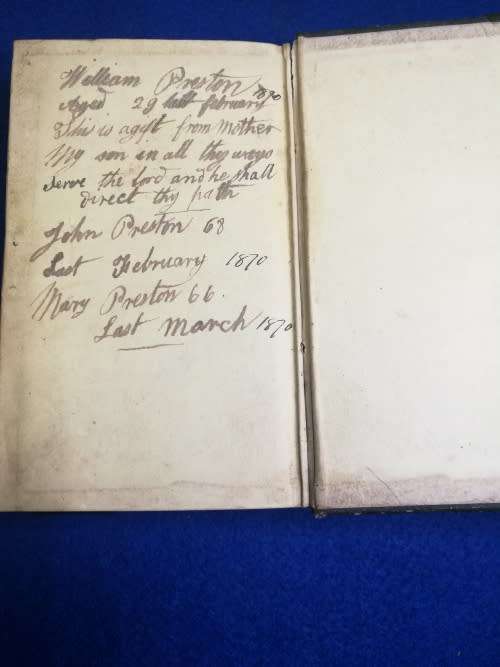 William Preston
Aged 29 last february 1870
This is a gift from Mother
My son in all thy ways
serve the lord and he shall
direct thy path
John Preston 68
Last February 1870
Mary Preston 66.
Last March 1870